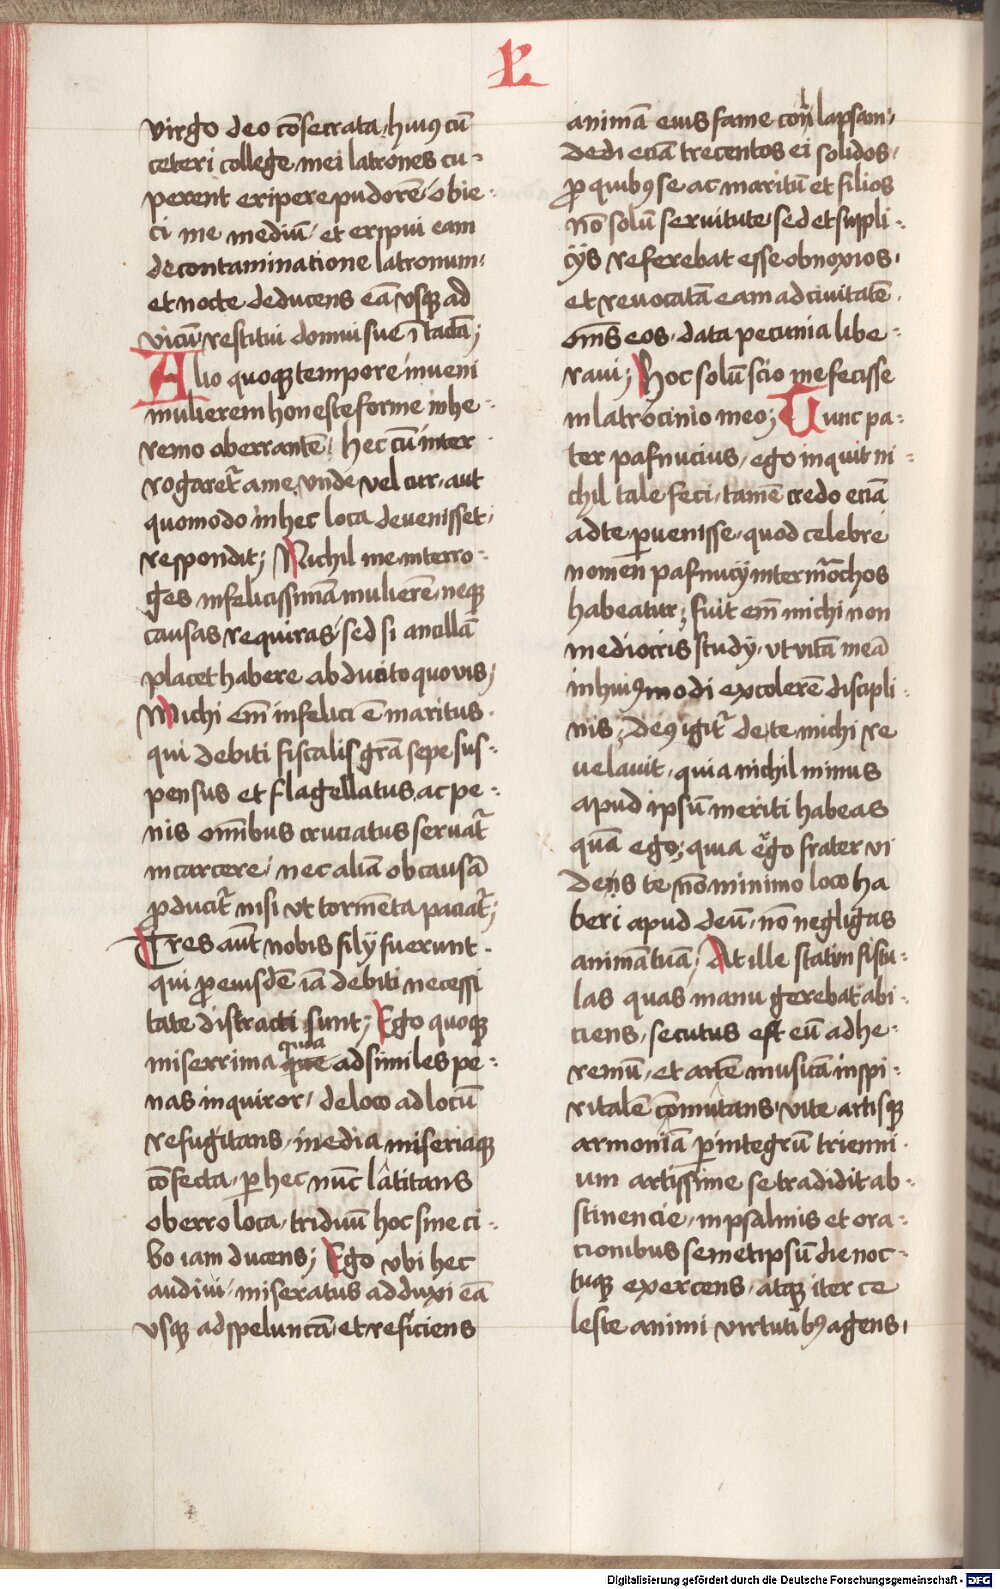 P
virgo deo cōsecrata, huiꝰ cū
ceteri college mei latrones cu-
perent eripere pudorē, obie-
ci me mediū, et eripui eam
de contaminatione latronum,
et nocte deducens eā vsqꝫ ad
vicū, restitui domui sue ītactā;
Alio quoqꝫ tempore inueni
mulierem honeste forme in he-
remo oberrantē, hec cū inter
rogaret᷑ a me, vnde vel cur, aut
quomodo in hec loca deuenisset,
respondit; Nichil me interro-
ges infelicissimā mulierē, neqꝫ
causas requiras, sed si ancillā
placet habere abducito quo vis;
Michi em̄ infelici ē maritus
qui debiti fiscalis gr̄a sepe sus-
pensus et flagellatus, ac pe-
nis om̄ibus cruciatus seruat᷑
in carcere, nec aliā ob causā
ꝓducit᷑ nisi vt tormēta paciat᷑;
Tres aūt nobis filij fuerunt
qui ꝓ eiusdē iā debiti necessi
tate distracti sunt; Ego quoqꝫ
miserrima que quia ad similes pe-
nas inquiror, de loco ad locū
refugitans, inedia miseriaqꝫ
cōfecta, ꝑ hec nūc latitans
oberro loca, triduū hoc sine ci-
bo iam ducens; Ego vbi hec
audiui, miseratus adduxi eā
vsqꝫ ad speluncā, et reficiens
animā eius fame conlapsam,
dedi eciā trecentos ei solidos,
ꝓ quibꝰ se ac maritū et filios
nō solū seruitute, sed et suppli-
cijs referebat esse obnoxios,
et reuocatā eam ad ciuitatē,
om̄s eos, data pecunia libe-
raui; Hoc solū scio me fecisse
in latrocinio meo; Tunc pa-
ter pafnucius, ego inquit ni-
chil tale feci, tamē credo eciā
ad te ꝑuenisse, quod celebre
nomen pafnucij inter mōchos
habeatur; fuit em̄ michi non
mediocris studij, vt vitā meā
in huiꝰmodi excolerē discipli
nis, deꝰ igit᷑ de te michi re
uelauit, quia nichil minus
apud ipsū meriti habeas
quā ego; quia ergo frater vi
dens te nō minimo loco ha
beri apud deū, nō negligas
animā tuā; At ille statim fistu-
las quas manu gerebat abi-
ciens, secutus est eū ad he-
remū, et artem musicā in spi-
ritalē cōmutans, vite artisqꝫ
armoniā ꝑ integrū trienni
um artissime se tradidit ab-
stinencie, in psalmis et ora-
cionibus semetipsū die noc-
tuqꝫ exercens, atqꝫ iter ce
leste animi virtutibꝰ agens,
Digitalisierung gefördert durch die Deutsche Forschungsgemeinschaft - DFG